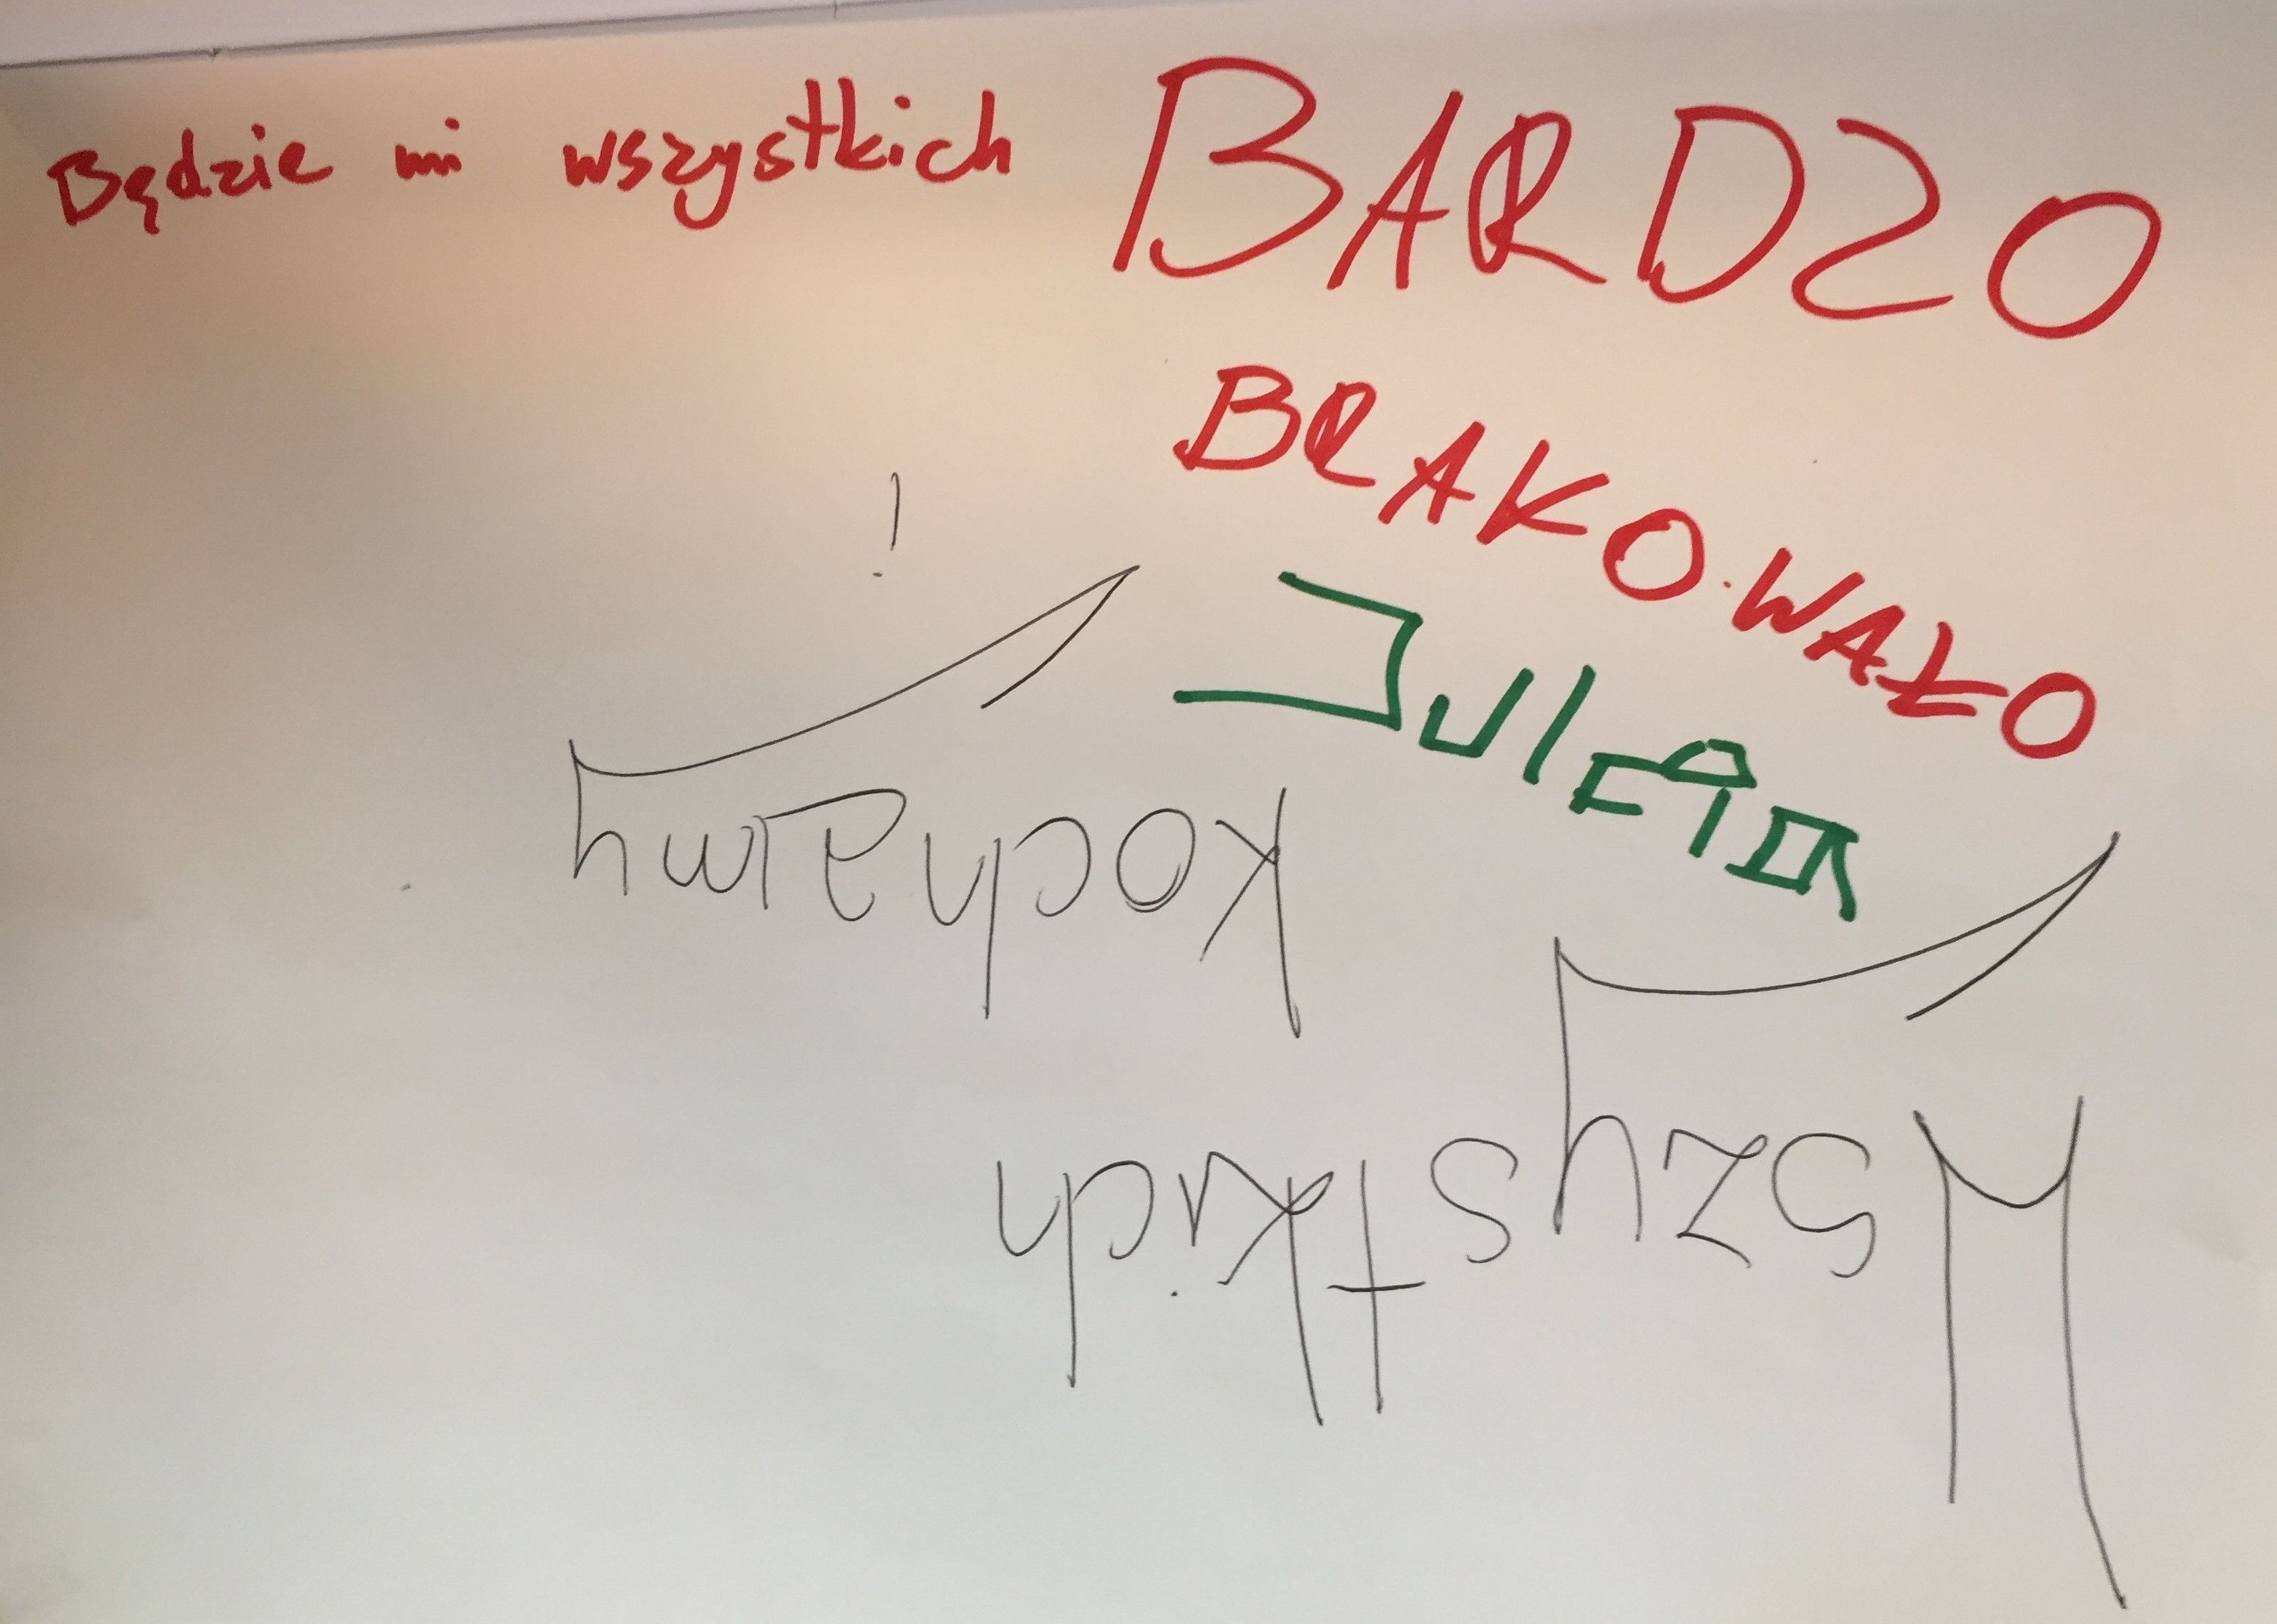 Będzie mi wszystkich BARDZO
BRAKOWAŁO
Wszystkich
kochamy!